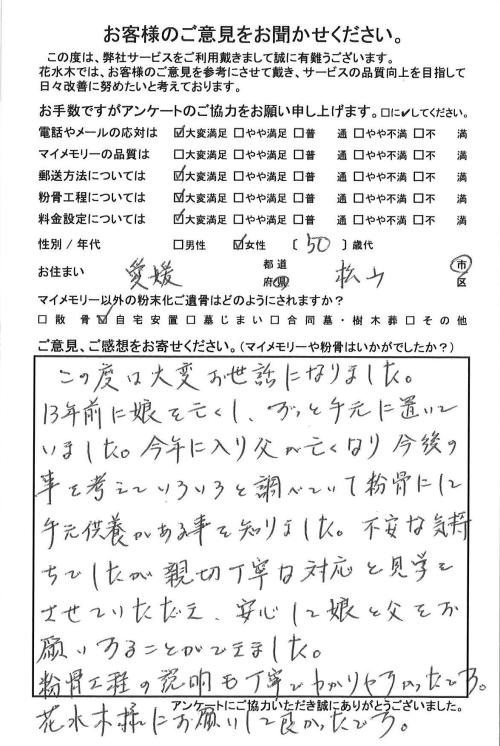 お客様のご意見をお聞かせください。
この度は、弊社サービスをご利用戴きまして誠に有難うございます。
花水木では、お客様のご意見を参考にさせて戴き、サービスの品質向上を目指して
日々改善に努めたいと考えております。
お手数ですがアンケートのご協力をお願い申し上げます。□に✓してください。
電話やメールの応対は ☑大変満足 □やや満足 □普 通 □やや不満 □不 満
マイメモリーの品質は □大変満足 □やや満足 □普 通 □やや不満 □不 満
郵送方法については ☑大変満足 □やや満足 □普 通 □やや不満 □不 満
粉骨工程については ☑大変満足 □やや満足 □普 通 □やや不満 □不 満
料金設定については ☑大変満足 □やや満足 □普 通 □やや不満 □不 満
性別 / 年代 □男性 ☑女性 〔 50 〕歳代
お住まい 愛媛 都道府県 松山 市区
マイメモリー以外の粉末化ご遺骨はどのようにされますか?
□散 骨 ☑自宅安置 □墓じまい □合同墓・樹木葬 □その他
ご意見、ご感想をお寄せください。(マイメモリーや粉骨はいかがでしたか?)
この度は大変お世話になりました。
13年前に娘を亡くし、ずっと手元に置いて
いました。今年に入り父が亡くなり今後の
事を考えていろいろと調べていて粉骨にして
手元供養がある事を知りました。不安な気持
ちでしたが親切丁寧な対応と見学を
させていただき、安心して娘と父をお
願いすることができました。
粉骨工程の説明も丁寧でわかりやすかったです。
アンケートにご協力いただき誠にありがとうございました。
花水木様にお願いして良かったです。